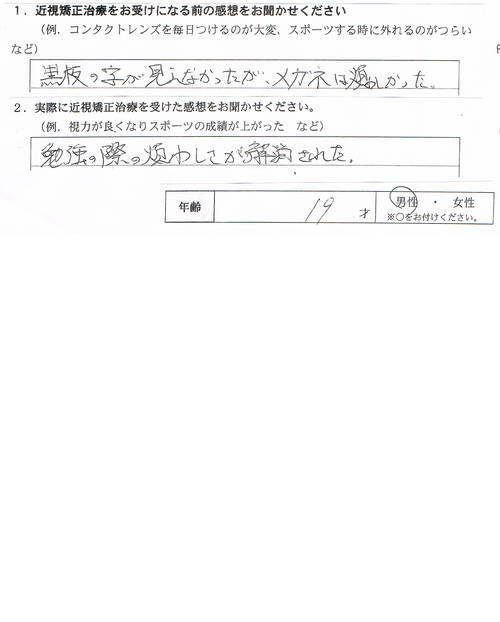 1．近視矯正治療をお受けになる前の感想をお聞かせください
（例．コンタクトレンズを毎日つけるのが大変、スポーツする時に外れるのがつらい
など）
黒板の字が見えなかったが、メガネは煩わしかった。
2．実際に近視矯正治療を受けた感想をお聞かせください。
（例．視力が良くなりスポーツの成績が上がった　など）
勉強の際の煩わしさが解消された。
年齢 19 才 男性 ・ 女性
※○をお付けください。